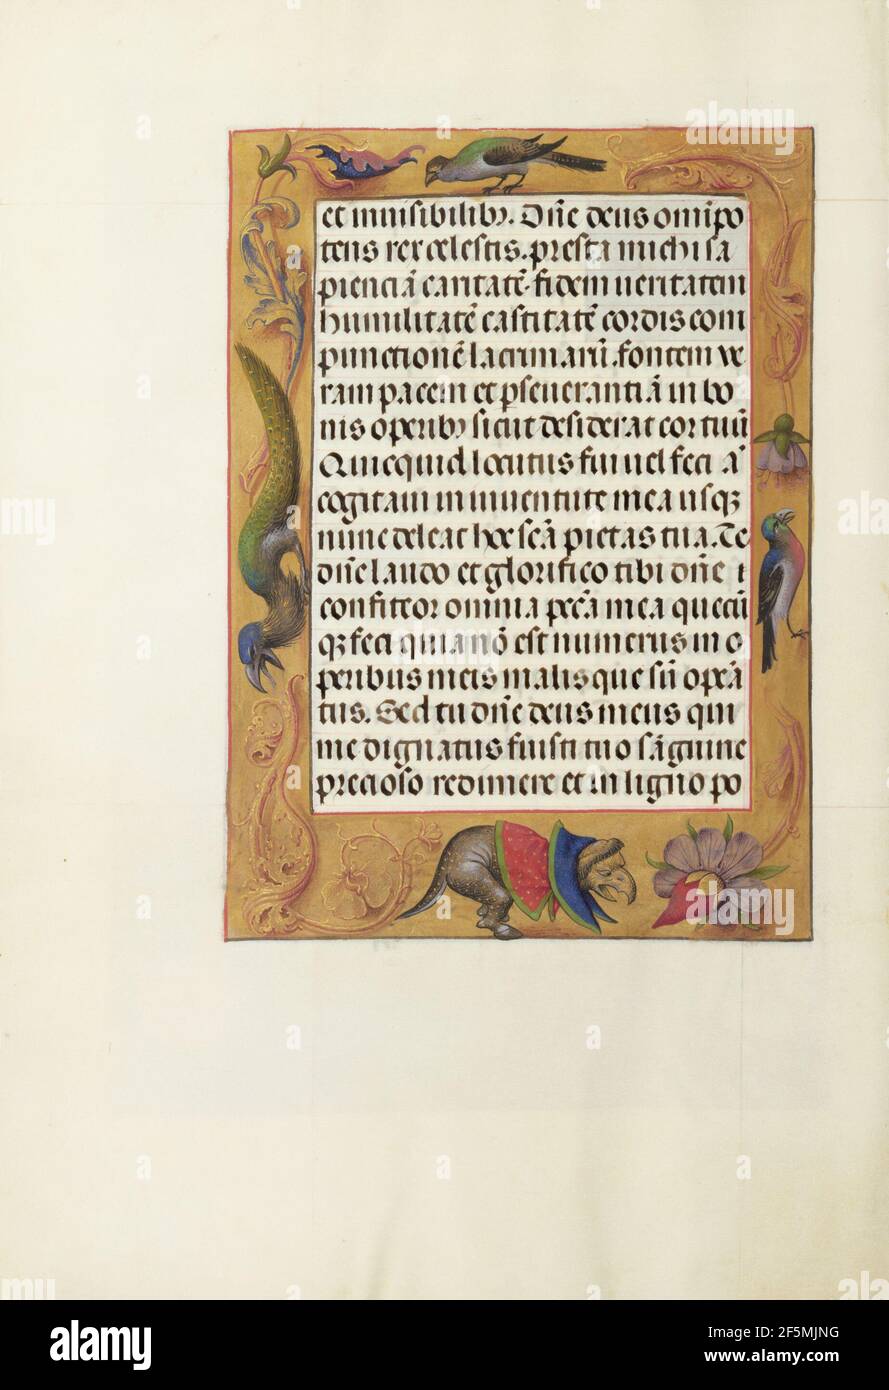 et inuisibilibꝰ. Dñe deus omĩpo
tens rex celestis. presta michi sa
pienciã caritatẽ. fidem ueritatem
humilitatẽ castitatẽ cordis com
punctionẽ lacrimarũ. fontem ve
ram pacem et pseuerantiã in bo
nis operibꝰ sicut desiderat cor tuũ
Quicquid locutus fui uel feci ã
cogitaui in iuuentute mea usqꝫ
nunc deleat hec scã pietas tua. Te
dñe laudo et glorifico tibi dñe ⁊
confiteor omnia pccã mea quecũ
qꝫ feci quia nõ est numerus in o
peribus meis malis que sũ opeã
tus. Sed tu dñe deus meus qui
me dignatus fuisti tuo sãguine
precioso redimere et in ligno po
alamy
Image ID: 2F5MJNG
www.alamy.com